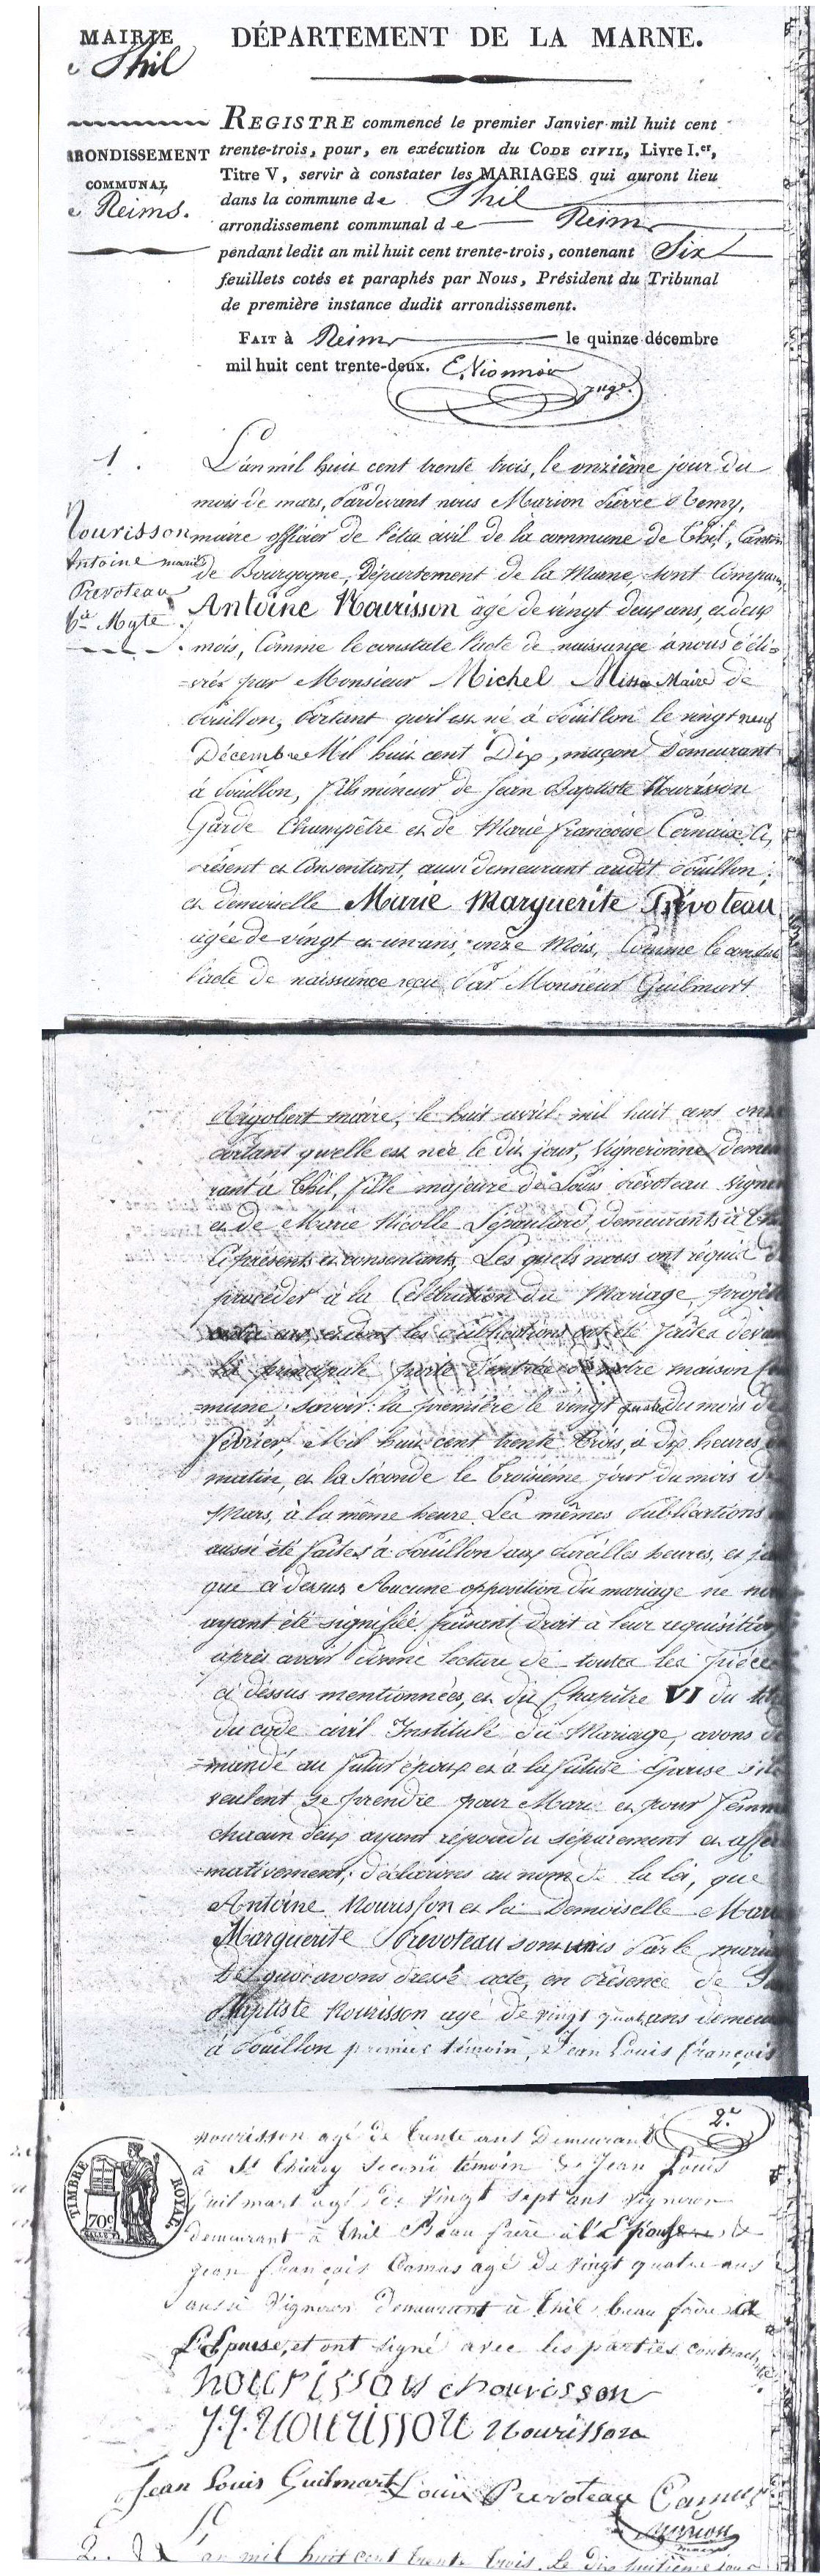 MAIRIE
e Thil
DÉPARTEMENT DE LA MARNE.
ARRONDISSEMENT
COMMUNAL
e Reims.
REGISTRE commencé le premier Janvier mil huit cent
trente-trois, pour, en exécution du CODE CIVIL, Livre I.er,
Titre V, servir à constater les MARIAGES qui auront lieu
dans la commune de Thil
arrondissement communal de Reims
pendant ledit an mil huit cent trente-trois, contenant Six
feuillets cotés et paraphés par Nous, Président du Tribunal
de première instance dudit arrondissement.
FAIT à Reims le quinze décembre
mil huit cent trente-deux.
juge.
1.
Nourisson
Antoine marié
Prevoteau
Mgte
L'an mil huit cent trente trois, le onzième jour du
mois de mars, Pardevant nous Marion Pierre Remy,
maire officier de l'état civil de la commune de Thil, Canton
de Bourgogne, Département de la Marne, sont Comparus
Antoine Nourisson âgé de vingt deux ans, et deux
mois, Comme le constate l'acte de naissance à nous déli=
=vrée par Monsieur Michel Maire de
Pouillon, Portant qu'il est né à Pouillon le vingt neuf
Décembre Mil huit cent Dix, maçon Demeurant
à Pouillon, fils mineur de Jean Baptiste Nourisson
Garde Champêtre et de Marie françoise Cernaux Ci,
présent et Consentant, aussi demeurant audit Pouillon;
et demoiselle Marie Marguerite Prévoteau
agée de vingt et un ans, onze Mois, Comme le constate
l'acte de naissance reçu Par Monsieur Guilmart
Rigobert maire, le huit avril mil huit cent onze
Portant quelle est née le dit jour, Vigneronne demeu
rant à Thil, fille majeure de Louis Prévoteau vigner
et de Marie Nicolle Lépoulard demeurants à Th
Ci présents et consentants, Les quels nous ont requis de
procéder à la Célébration du Mariage, projeté
entre eux, et dont les Publications ont été faites devant
la principale porte d'entrée de notre maison Com
=mune. Savoir: la première le vingt quatre du mois de
février, Mil huit cent trente trois, à dix heures
matin, et la Séconde le Troisième jour du mois de
Mars, à la même heure. Les mêmes Publications
aussi été faites à Pouillon aux pareilles heures, et jo
que ci dessus Aucune opposition du mariage ne nou
ayant été signifiée, faisant droit à leur requisition
après avoir donné lecture de toutes les pièces
ci dessus mentionnées, et du Chapitre VI du tit
du code civil Instituté du Mariage, avons de
=mandé au futur époux et à la future Epouse s'ils
veulent se prendre pour Mari et pour femme
chacun d'eux ayant répondu séparement et affir
=mativement, déclarons au nom de la loi, que
Antoine Nourisson et la Demoiselle Marie
Marguerite Prevoteau sont unis Par le maria
De quoi avons dressé acte, en présence de Je
Baptiste Nourisson agé de vingt quat. ans demeu
à Pouillon premier témoin, Jean Louis François
2.e
nourisson agé de trente ans Demeurant
à St Thierry second témoin de Jean Louis
Guilmart agé de Vingt sept ans vigneron
demeurant à Thil Beau frère à l'Epouse et de
jean françois Camus agé de Vingt quatre ans
aussi Vigneron demeurant à Thil beau frère à
L'Epouse, et ont signé avec les parties contractantes
TIMBRE ROYAL
70c
nourisson nourisson
J.J. nourisson Nourisson
Jean Louis Guilmart Louis Prevoteau Camus
Marion
maire
2. L'an mil huit cent trente trois, le dix huitième jour